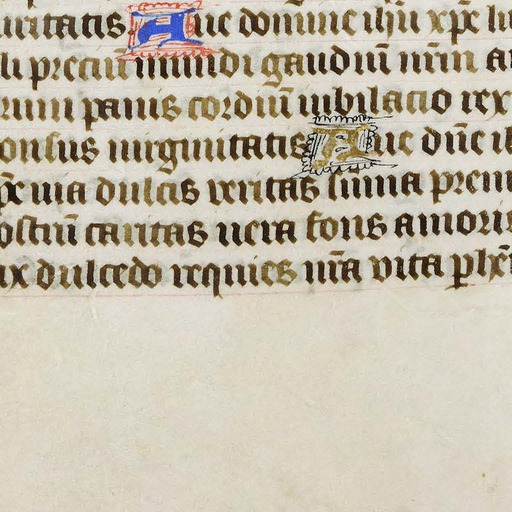 uritatis Aue domine ihu xpe lu
li preciu mundi gaudiu nrm a
rum panis cordiu iubilacio rex
onsus uirginitatis Aue dne ih
px uia dulcis ueritas suma prem
ostru caritas uera fons amoris
ax dulcedo requies nra vita phen